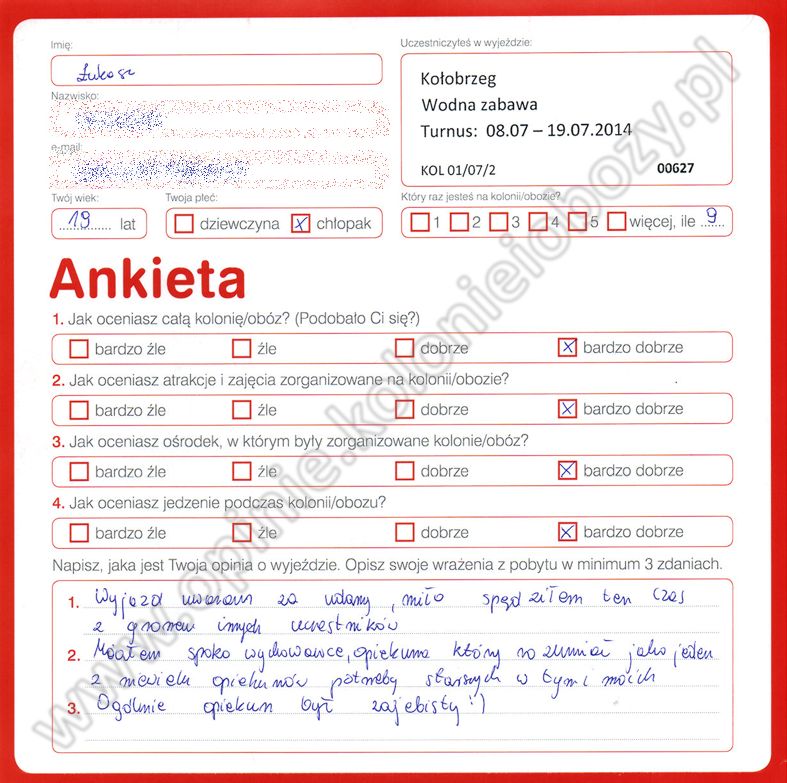 Imię:
Łukasz
Nazwisko:
e-mail:
Uczestniczyłeś w wyjeździe:
Kołobrzeg
Wodna zabawa
Turnus: 08.07 – 19.07.2014
KOL 01/07/2 00627
Twój wiek:
19 lat
Twoja płeć:
dziewczyna x chłopak
Który raz jesteś na kolonii/obozie?
1 2 3 4 5 więcej, ile 9
Ankieta
1. Jak oceniasz całą kolonię/obóz? (Podobało Ci się?)
bardzo źle źle dobrze x bardzo dobrze
2. Jak oceniasz atrakcje i zajęcia zorganizowane na kolonii/obozie?
bardzo źle źle dobrze x bardzo dobrze
3. Jak oceniasz ośrodek, w którym były zorganizowane kolonie/obóz?
bardzo źle źle dobrze x bardzo dobrze
4. Jak oceniasz jedzenie podczas kolonii/obozu?
bardzo źle źle dobrze x bardzo dobrze
Napisz, jaka jest Twoja opinia o wyjeździe. Opisz swoje wrażenia z pobytu w minimum 3 zdaniach.
1. Wyjazd uważam za udany, miło spędziłem ten czas
z gronem innych uczestników
2. Miałem spoko wychowawce, opiekuna który rozumiał jako jeden
z niewielu opiekunów potrzeby starszych w tym i moich
3. Ogólnie opiekun był zajebisty :)
www.opinie.kolonieiobozy.pl